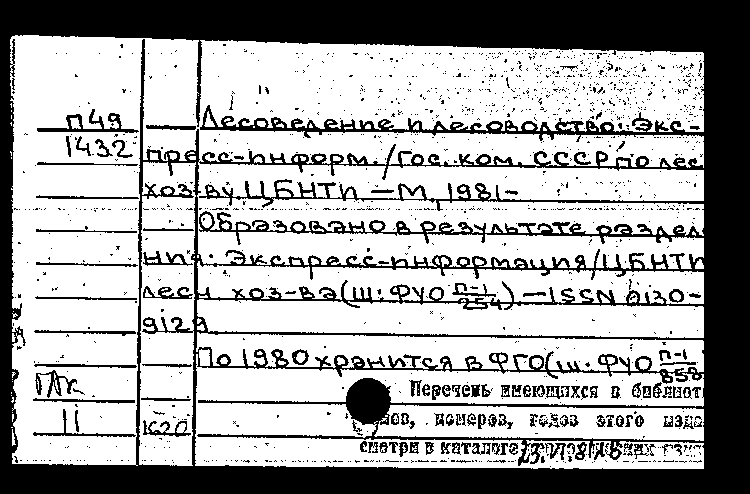 П49
1432
Лесоведение и лесоводство: Экс-
пресс-информ./Гос. ком. СССР по лес
хоз-ву, ЦБНТИ.—М., 1981-
Образовано в результате раздел
ния: Экспресс-информация/ЦБНТИ
лесн. хоз-ва (Ш: ФУО П-1/254).—ISSN 0130-
9129
По 1980 хранится в ФГО (Ш: ФУО П-1/858
Перечень имеющихся в библиот
номеров, годов этого изда
смотри в каталоге
11
1620